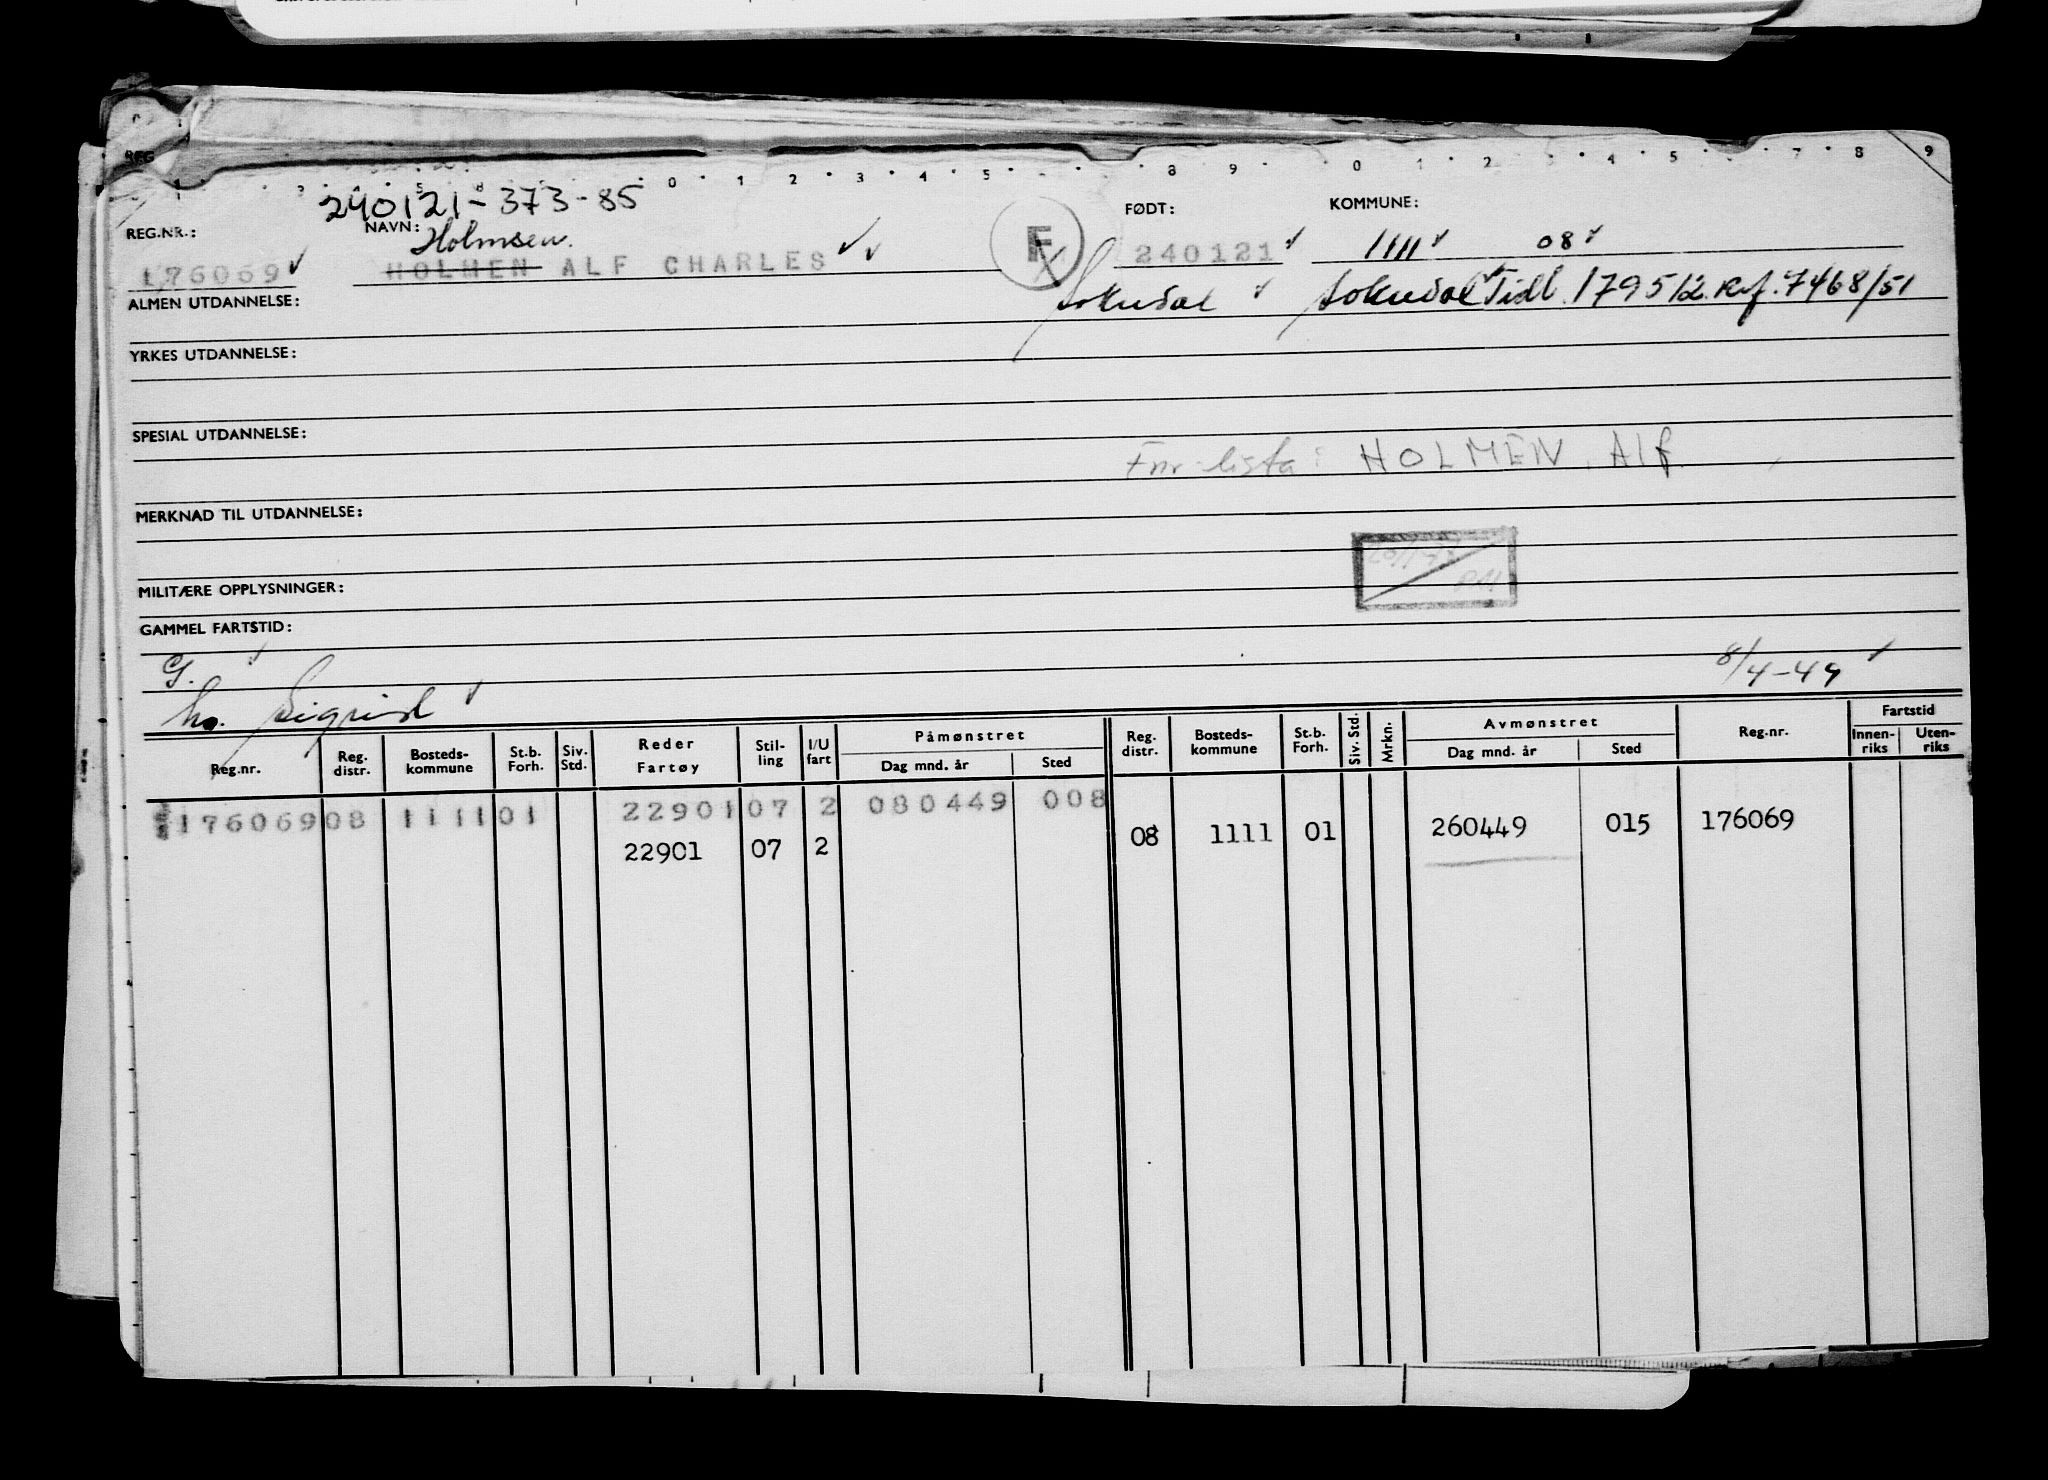 REG
240121-373-85
REG.NR.: NAVN: FØDT: KOMMUNE:
Holmsen.
176069 HOLMEN ALF CHARLES F 240121 1111 08
ALMEN UTDANNELSE: Sokndal Sokndal Tidl. 179512. Ref. 7468/51
YRKES UTDANNELSE:
SPESIAL UTDANNELSE:
Fnr-lista: HOLMEN, Alf
MERKNAD TIL UTDANNELSE:
MILITÆRE OPPLYSNINGER:
GAMMEL FARTSTID:
G. 8/4-49
hu. Sigrid
Reg.nr. Reg. distr. Bosteds-kommune St.b. Forh. Siv. Std. Reder Fartøy Stil-ling I/U fart Påmønstret Dag mnd. år Sted Reg. distr. Bosteds-kommune St.b. Forh. Siv. Std. Mrkn. Avmønstret Dag mnd. år Sted Reg.nr. Fartstid Innen-riks Uten-riks
176069 08 1111 01 22901 07 2 080449 008
22901 07 2 08 1111 01 260449 015 176069